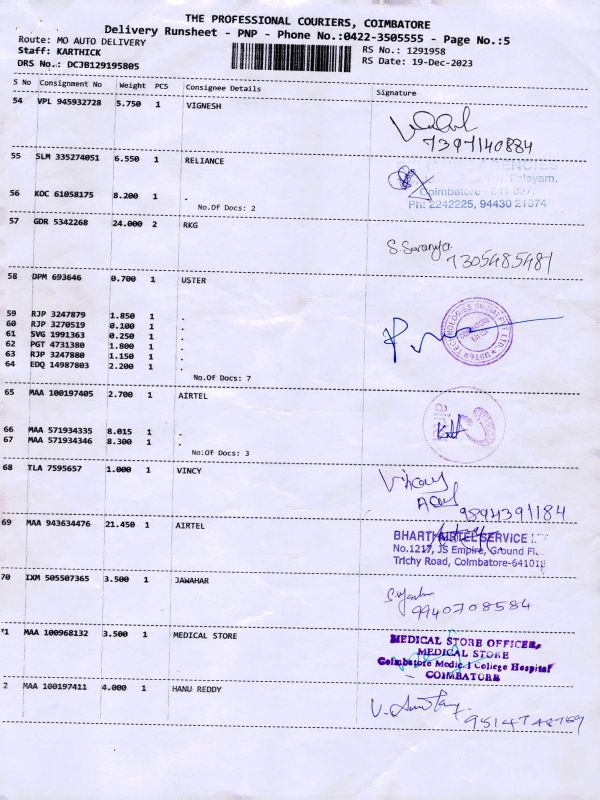 THE PROFESSIONAL COURIERS, COIMBATORE
Delivery Runsheet - PNP - Phone No.:0422-3505555 - Page No.:5
Route: MO AUTO DELIVERY RS No.: 1291958
Staff: KARTHICK RS Date: 19-Dec-2023
DRS No.: DCJB129195805
S No Consignment No Weight PCS Consignee Details Signature
54 VPL 945932728 5.750 1 VIGNESH
7397140884
55 SLM 335274051 6.550 1 RELIANCE
AGENCIES
Palayam,
56 KOC 61058175 8.200 1 .
Coimbatore - 641 037.
No.Of Docs: 2 Ph: 2242225, 94430 21374
57 GDR 5342268 24.000 2 RKG
S. Saranya. 7305485481
58 DPM 693646 0.700 1 USTER
59 RJP 3247879 1.850 1 .
60 RJP 3270519 0.100 1 .
61 SVG 1991363 0.250 1 .
62 PGT 4731380 1.800 1 .
63 RJP 3247880 1.150 1 .
64 EDQ 14987803 2.200 1 .
USTER TECHNOLOGIES PVT. LTD.
No.Of Docs: 7
65 MAA 100197405 2.700 1 AIRTEL
66 MAA 571934335 8.015 1 .
67 MAA 571934346 8.300 1 .
No.Of Docs: 3
68 TLA 7595657 1.000 1 VINCY
9894391184
69 MAA 943634476 21.450 1 AIRTEL
BHARTI AIRTEL SERVICE
No.1217, JS Empire, Ground
Trichy Road, Coimbatore-641018
70 IXM 505507365 3.500 1 JAWAHAR
9940708584
71 MAA 100968132 3.500 1 MEDICAL STORE
MEDICAL STORE OFFICER,
MEDICAL STORE
Coimbatore Medical College Hospital
COIMBATORE
2 MAA 100197411 4.000 1 HANU REDDY
9514748769